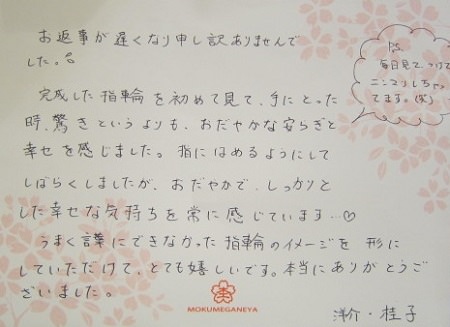 お返事が遅くなり申し訳ありませんで
した。
完成した指輪を初めて見て、手にとった
時、驚きというよりも、おだやかな安らぎと
幸せを感じました。指にはめるようにして
しばらくしましたが、おだやかで、しっかりと
した幸せな気持ちを常に感じています…♡
うまく言葉にできなかった指輪のイメージを形に
していただけて、とても嬉しいです。本当にありがとうご
ざいました。
洋介・桂子
P.S
毎日見て、つけて
ニンマリしちゃっ
てます。(笑)
MOKUMEGANEYA